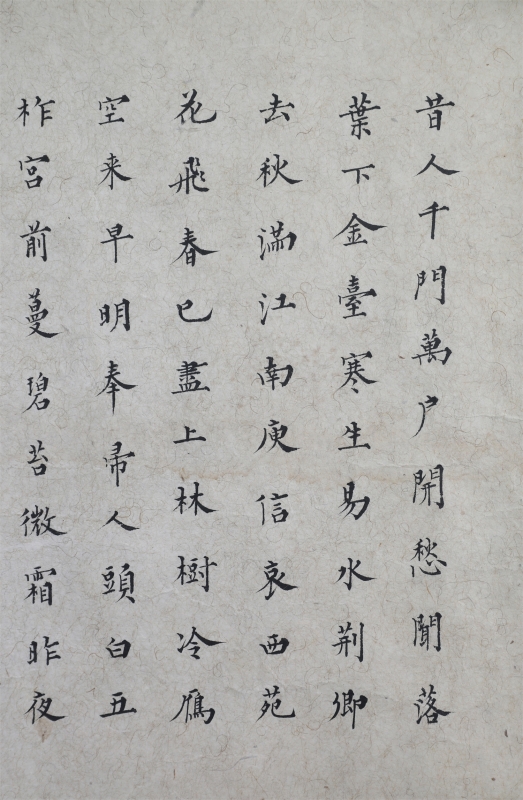 昔人千門萬户開愁聞落
葉下金臺寒生易水荆卿
去秋滿江南庾信哀西苑
花飛春已盡上林樹冷鴈
空来早明奉帚人頭白五
柞宮前蔓碧苔微霜昨夜